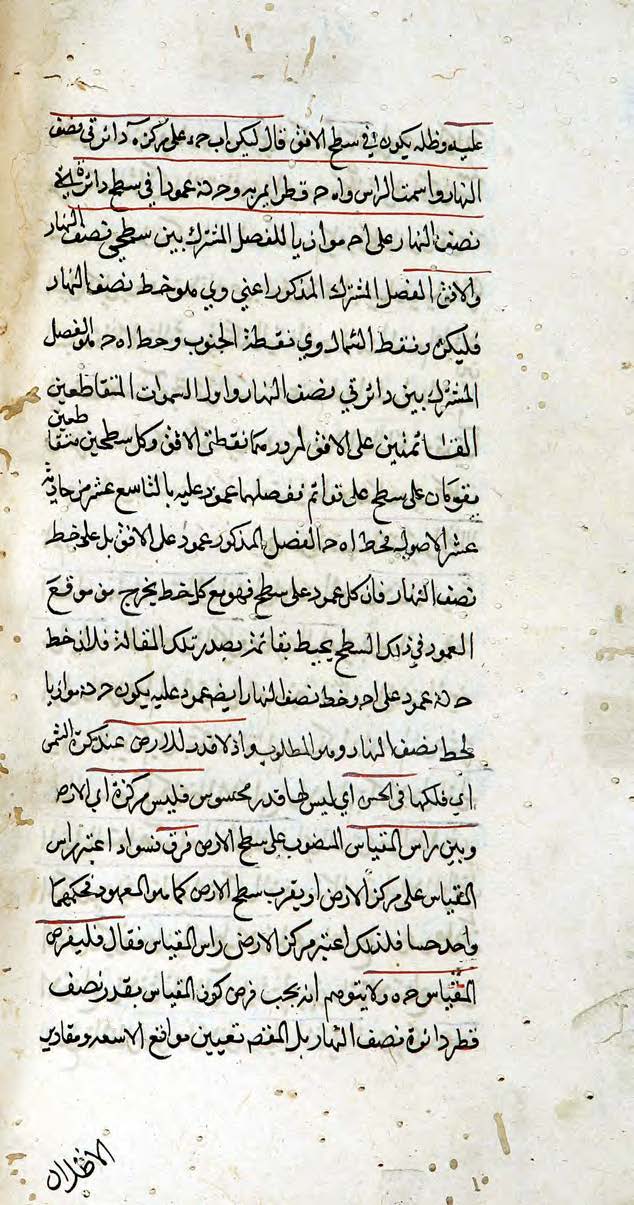 عليه وظله يكون في سطح الافق قال ليكن اب حء على مركزه دائرتي نصف
النهار واسمت الراس واه ح قطرا يمر به وح دنه عمودا في سطح دائرة
نصف النهار على اح موازيا للفصل المشترك بين سطحي نصف النهار
والافق الفصل المشترك المذكور اعني وي هو خط نصف النهار
فليكن ونقطة الشمال وي نقطة الجنوب وخط اه ح هو الفصل
المشترك بين دائرتي نصف النهار واول السموات المتقاطعين
القائمتين على الافق لمرورهما بنقطتي الافق وكل سطحين متقاطعين
يقومان على سطح على قوائم ففصلهما عمود عليه بالتاسع عشر من حادية
عشر الاصول فخط اه ح الفصل المذكور عمود على الافق بل على خط
نصف النهار فان كل عمود على سطح فهو مع كل خط يخرج من موقع
العمود في ذلك السطح يحيط بقائمة بصدر تلك المقالة فلان خط
ح دنه عمود على اح وخط نصف النهار ايضا عمود عليه يكون ح دنه موازيا
لخط نصف النهار وهو المطلوب واذ لا قدر للارض عند كرة الشمس
اي فلكها في الحس اي ليس لها قدر محسوس فليس مركزه اي الارض
وبين راس المقياس المنصوب على سطح الارض فرق فسواء اعتبر راس
المقياس على مركز الارض او بقرب سطح الارض كما هو المعهود فحكمهما
واحد حسا فلذلك اعتبر مركز الارض راس المقياس فقال فليفرض
المقياس ح ه ولا يتوهم انه يجب فرض كون المقياس بقدر نصف
قطر دائرة نصف النهار بل المقصد تعيين مواقع الاشعة ومقادير
الاظلال